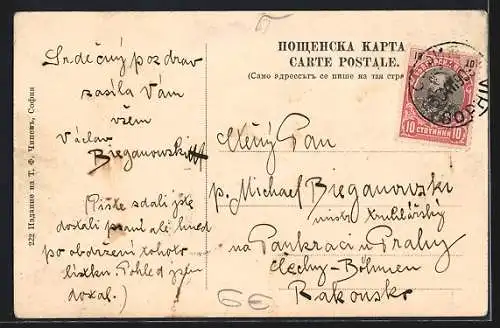 ПОЩЕНСКА КАРТА
CARTE POSTALE.
(Само адрессътъ се пише на тая стра
222 Издание на Т. Ф. Чипевъ, София
10 СТОТИНКИ 10
Srdečný pozdrav
zasílá Vám
všem
Václav
Bieganowski
(Pište zdali jste
dostali psaní ale hned
po obdržení tohoto
lístku. Pohled jsem
dostal.)
Ctěný Pan
p. Michael Bieganowski
mistr truhlářský
na Pankráci u Prahy
Čechy-Böhmen
Rakousko